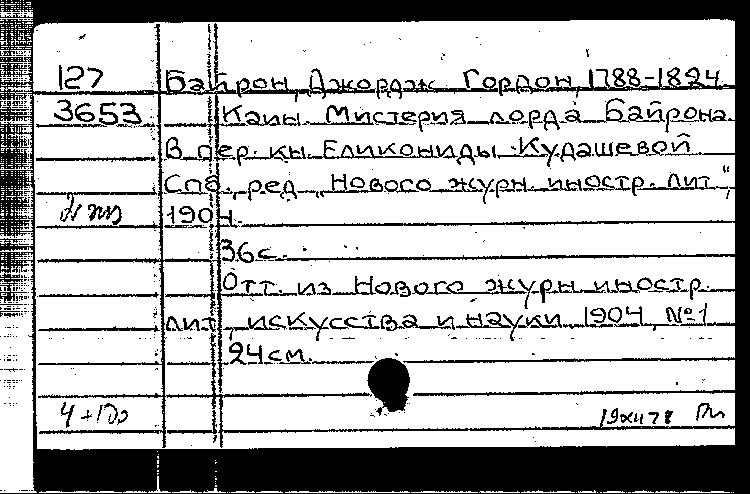 127 Байрон, Джордж Гордон, 1788-1824.
3653 Каин. Мистерия лорда Байрона.
В пер. кн. Еликониды Кудашевой.
Спб., ред. "Нового журн. иностр. лит.",
1904.
36 с.
Отт. из Нового журн. иностр.
лит., искусства и науки, 1904, №1
24 см.